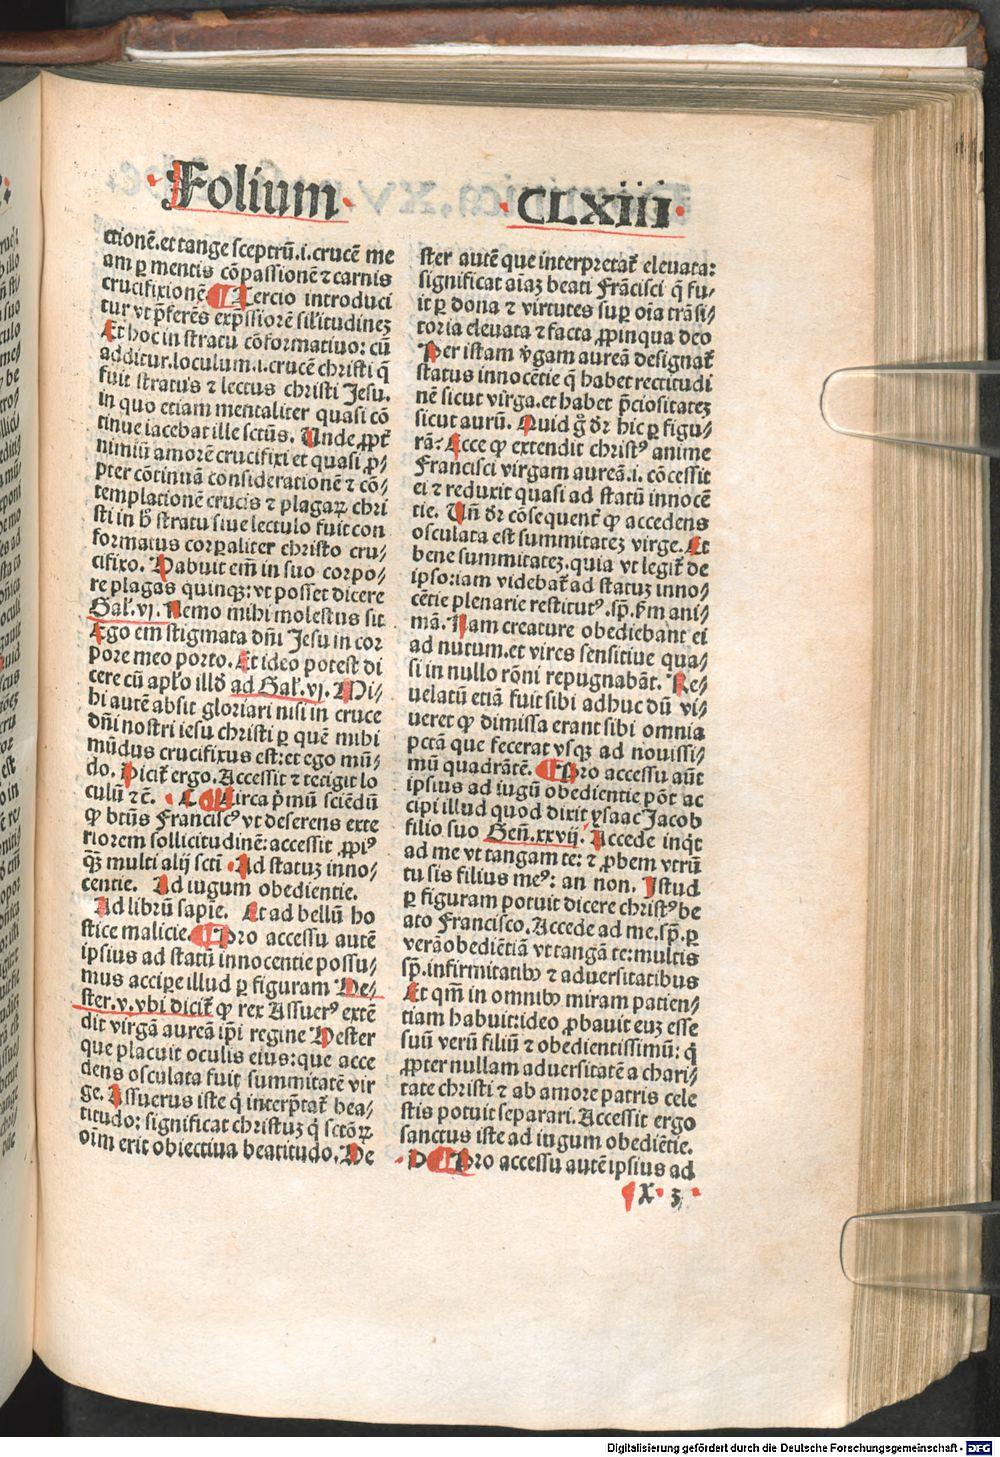 Folium CLXIII
ctionē.et tange sceptrū.i.crucē me
am ꝑ mentis cōpassionē ⁊ carnis
crucifixionē. ¶ Tercio introduci
tur vt p̄ferēs exp̄ssiorē sil'itudinēꝫ
Et hoc in stratu cōformatiuo: cū
additur.loculum.i.crucē christi q̄
fuit stratus ⁊ lectus christi Jesu.
in quo etiam mentaliter quasi cō
tinue iacebat ille sctūs. Unde ꝓpt̄
nimiū amorē crucifixi et quasi ꝓ⸗
pter cōtinuā considerationē ⁊ cō⸗
templationē crucis ⁊ plagaꝝ chri
sti in h̄ stratu siue lectulo fuit con
formatus corꝑaliter christo cru⸗
cifixo. Habuit em̄ in suo corpo⸗
re plagas quinqꝫ: vt posset dicere
Gal'.vj. Nemo mihi molestus sit
Ego em̄ stigmata dn̄i Jesu in cor
pore meo porto. Et ideo potest di
cere cū apl'o illd̄ ad Gal'.vj. Mi⸗
hi autē absit gloriari nisi in cruce
dn̄i nostri iesu christi ꝑ quē mihi
mūdus crucifixus est: et ego mū⸗
do. Dicit̄ ergo. Accessit ⁊ tetigit lo
culū ⁊c̄. C ¶ Circa p̄mū sciēdū
ꝙ bt̄us Franciscꝰ vt deserens exte
riorem sollicitudinē: accessit ꝓpiꝰ
qꝫ̄ multi alij sct̄i Ad statuꝫ inno⸗
centie. Ad iugum obedientie.
Ad librū sapīe. Et ad bellū ho
stice malicie. ¶ Pro accessu autē
ipsius ad statū innocentie possu⸗
mus accipe illud ꝑ figuram He⸗
ster.v.vbi dicit̄ ꝙ rex Assuerꝰ extē
dit virgā aureā ip̄i regine Hester
que placuit oculis eius: que acce
dens osculata fuit summitatē vir
ge. Assuerus iste q̄ interp̄tat̄ bea⸗
titudo: significat christuꝫ q̄ sctōꝝ
oīm erit obiectiua beatitudo. He
ster autē que interpretat̄ eleuata:
significat aīaꝫ beati Frācisci q̄ fu⸗
it ꝑ dona ⁊ virtutes suꝑ oīa trāsi⸗
toria eleuata ⁊ facta ꝓpinqua deo
Per istam v̄gam aureā designat̄
status innocētie q̄ habet rectitudi
nē sicut virga.et habet p̄ciositateꝫ
sicut aurū. Quid g̊ dr̄ hic ꝑ figu⸗
rā: Ecce ꝙ extendit christꝰ anime
Francisci virgam aureā.i. cōcessit
ei ⁊ reduxit quasi ad statū innocē
tie. Un̄ dr̄ cōsequent̄ ꝙ accedens
osculata est summitateꝫ virge. Et
bene summitateꝫ.quia vt legit̄ de
ipso: iam videbat̄ ad statuꝫ inno⸗
cētie plenarie restitutꝰ. sp̄. ẜm ani⸗
mā. Nam creature obediebant ei
ad nutum.et vires sensitiue qua⸗
si in nullo rōni repugnabāt. Re⸗
uelatū etiā fuit sibi adhuc dū vi⸗
ueret ꝙ dimissa erant sibi omnia
pctā que fecerat vsqꝫ ad nouissi⸗
mū quadrātē. ¶ Pro accessu aūt
ipsius ad iugū obedientie pōt ac
cipi illud quod dixit ysaac Jacob
filio suo Gen̄.xxvij. Accede inq̄t
ad me vt tangam te: ⁊ ꝓbem vtrū
tu sis filius meꝰ: an non. Istud
ꝑ figuram potuit dicere christꝰ be
ato Francisco. Accede ad me.sp̄.ꝑ
verā obediētiā vt tangā te: multis
sp̄.infirmitatibꝰ ⁊ aduersitatibus
Et qm̄ in omnibꝰ miram patien⸗
tiam habuit: ideo ꝓbauit euꝫ esse
suū verū filiū ⁊ obedientissimū: q̄
ꝓpter nullam aduersitatē a chari⸗
tate christi ⁊ ab amore patris cele
stis potuit separari. Accessit ergo
sanctus iste ad iugum obediētie.
D ¶ Pro accessu autē ipsius ad
X 3
Digitalisierung gefördert durch die Deutsche Forschungsgemeinschaft - DFG